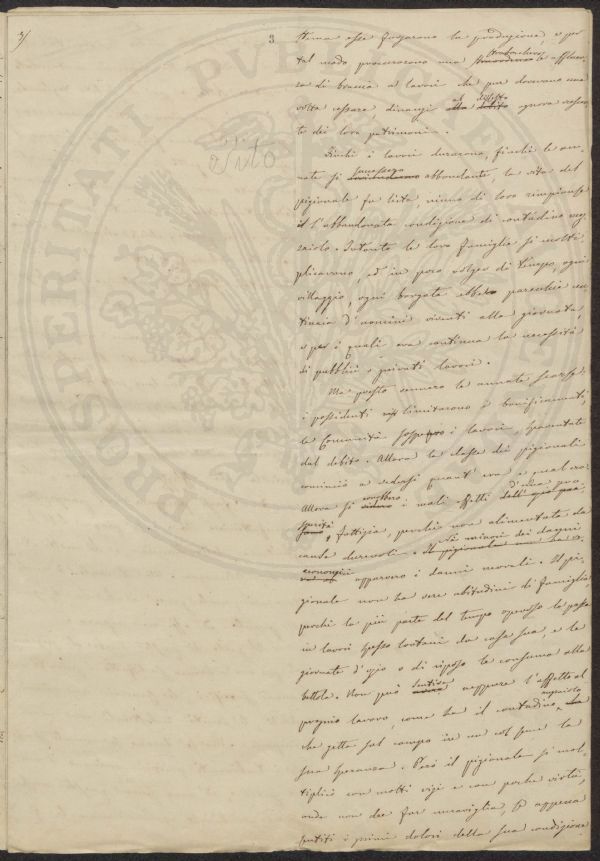 3/
3
Vito
tema esse forzarono la produzione, e per
tal modo procurarono una straordinaria affluen-
za di braccia a lavori che pur dovevano una
volta cessare, dinanzi alla debito al dissesto ognora crescen-
te dei loro patrimoni.
Finchè i lavori durarono, finchè le an-
nate si successero abbondanti, la vita del
pigionale fu lieta, niuno di loro rimpianse
l'abbandonata condizione di contadino mez-
zaiolo. Intanto le loro famiglie si molti-
plicavano, ed in poco volger di tempo, ogni
villaggio, ogni borgata ebbe parecchie cen-
tinaia d'uomini viventi alla giornata,
e per i quali era continua la necessità
di pubblici e privati lavori.
Ma presto vennero le annate scarse:
i possidenti limitarono i bonificamenti,
le Comunità sospesero i lavori, spaventate
dal debito. Allora la classe dei pigionali
cominciò a vedersi quant'era e qual era.
Allora si conobbero i mali effetti d'una pro-
sperità fittizia, perchè non alimentata da
cause durevoli. Nè minori dei danni
economici apparvero i danni morali. Il pi-
gionale non ha vere abitudini di famiglia
perchè la più parte del tempo operoso la passa
in lavori spesso lontani da casa sua, e le
giornate d'ozio o di riposo le consuma alla
bettola. Non può sentire neppure l'affetto al
proprio lavoro, come ha il contadino mezzaiolo
che getta sul campo in un col seme la
sua speranza. Però il pigionale si mol-
tiplicò con molti vizi e con poche virtù,
onde non dee far maraviglia, se appena
sentiti i primi dolori della sua condizione